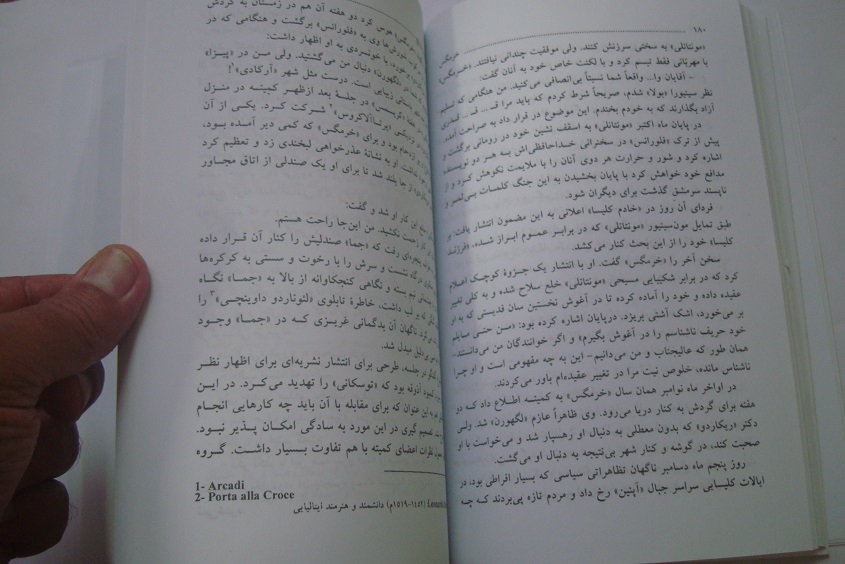 ۱۸۰
خرمگس
«مونتانلی» به سختی سرزنش کنند. ولی موفقیت چندانی نیافتند. «خرمگس»
با مهربانی فقط تبسم کرد و با لکنت خاص خود به آنان گفت:
– آقایان وا... واقعاً شما نسبتاً بی‌انصافی می‌کنید. من هنگامی که تسلیم
نظر سینیورا «بولا» شدم، صریحاً شرط کردم که باید مرا قـ... قـ... قدری
آزاد بگذارند که به خودم بخندم. این موضوع در قرار داد به صراحت آمده
در پایان ماه اکتبر «مونتانلی» به اسقف نشین خود در رومانی برگشت و
پیش از ترک «فلورانس» در سخنرانی خداحافظی‌اش به هر دو نویسنده
اشاره کرد و شور و حرارت هر دوی آنان را با ملایمت نکوهش کرد و از
مدافع خود خواهش کرد با پایان بخشیدن به این جنگ کلمات بی‌ثمر و
ناپسند سرمشق گذشت برای دیگران شود.
فردای آن روز در «خادم کلیسا» اعلانی به این مضمون انتشار یافت: بر
طبق تمایل مون‌سینیور «مونتانلی» که در برابر عموم ابراز شده، «فرزند
کلیسا» خود را از این بحث کنار می‌کشد.
سخن آخر را «خرمگس» گفت. او با انتشار یک جزوهٔ کوچک اعلام
کرد که در برابر شکیبایی مسیحی «مونتانلی» خلع سلاح شده و به کلی تغییر
عقیده داده و خود را آماده کرده تا در آغوش نخستین سان فدیستی که به او
بر می‌خورد، اشک آشتی بریزد. درپایان اشاره کرده بود: «من حتی مایلم
خود حریف ناشناسم را در آغوش بگیرم» و اگر خوانندگان من می‌دانستند-
همان طور که عالیجناب و من می‌دانیم - این به چه مفهومی است و او چرا
ناشناس مانده، خلوص نیت مرا در تغییر عقیده‌ام باور می‌کردند.
در اواخر ماه نوامبر همان سال «خرمگس» به کمیته اطلاع داد که دو
هفته برای گردش به کنار دریا می‌رود. وی ظاهراً عازم «لگهورن» شد. ولی
دکتر «ریکاردو» که بدون معطلی به دنبال او رهسپار شد و می‌خواست با او
صحبت کند، در گوشه و کنار شهر بی‌نتیجه به دنبال او می‌گشت.
روز پنجم ماه دسامبر ناگهان تظاهراتی سیاسی که بسیار افراطی بود، در
ایالات کلیسایی سراسر جبال «آپنین» رخ داد و مردم تازه پی‌بردند که چه
هوس کرد دو هفته آن هم در زمستان به گردش
شورش‌ها وی به «فلورانس» برگشت و هنگامی که در
خورد، با خونسردی به او اظهار داشت:
«لگهورن» دنبال من می‌گشتید. ولی من در «پیزا»
باستانی زیبایی است. درست مثل شهر «آرکادی»۱!
در جلسهٔ بعد ازظهر کمیته در منزل
«پرتاآلاکروس»۲ شرکت کرد. یکی از آن
ازدحام بود و برای «خرمگس» که کمی دیر آمده بود،
به نشانهٔ عذرخواهی لبخندی زد و تعظیم کرد
از جا بلند شد تا برای او یک صندلی از اتاق مجاور
این کار او شد و گفت:
زحمت نکشید. من این‌جا راحت هستم.
پنجره‌ای رفت که «جما» صندلیش را کنار آن قرار داده
نشست و سرش را با رخوت و سستی به کرکره‌ها
نیم بسته و نگاهی کنجکاوانه از بالا به «جما» نگاه
بر لب داشت، خاطرهٔ تابلوی «لئوناردو داوینچی»۳ را
ناگهان آن بدگمانی غریزی که در «جما» وجود
مبدل شد.
در جلسه، طرحی برای انتشار نشریه‌ای برای اظهار نظر
آذوقه بود که «توسکانی» را تهدید می‌کرد. در این
این عنوان که برای مقابله با آن باید چه کارهایی انجام
تصمیم گیری در این مورد به سادگی امکان پذیر نبود.
نظرات اعضای کمیته با هم تفاوت بسیار داشت. گروه
1- Arcadi
2- Porta alla Croce
(۱۴۵۲-۱۵۱۹م) دانشمند و هنرمند ایتالیایی